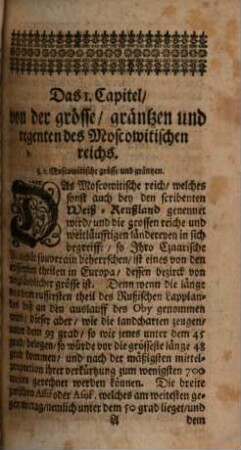 Das 1. Capitel/
von der grösse/ gräntzen und
regenten des Moscowitischen
reichs.
§. 1. Moscowitische grösse und gräntzen.
DAs Moscowitische reich/ welches
sonst auch bey den scribenten
Weiß-Reußland genennet
wird/ und die grossen reiche und
weitläufftigen länderenen in sich
begreifft/ so Ihro Czaarische
souverain beherrschen/ ist eines von den
theilen in Europa/ dessen bezirck von
grösse ist. Denn wenn die länge
von dem eussersten theil des Rußischen Lapplan-
des biß an den außlauff des Oby genommen
wird/ dieser aber/ wie die landcharten zeugen/
unter dem 93 grad/ so wie jenes unter dem 45
grad/ belegen/ so würde vor die grösseste länge 48
grad kommen/ und nach der mäßigsten mittel-
proportion ihrer verkürtzung zum wenigsten 700
meilen gerechnet werden können. Die breite
zwischen Assu oder Asof/ welches am weitesten ge-
gen mittag/ nemlich unter dem 50 grad lieget/ und
A dem